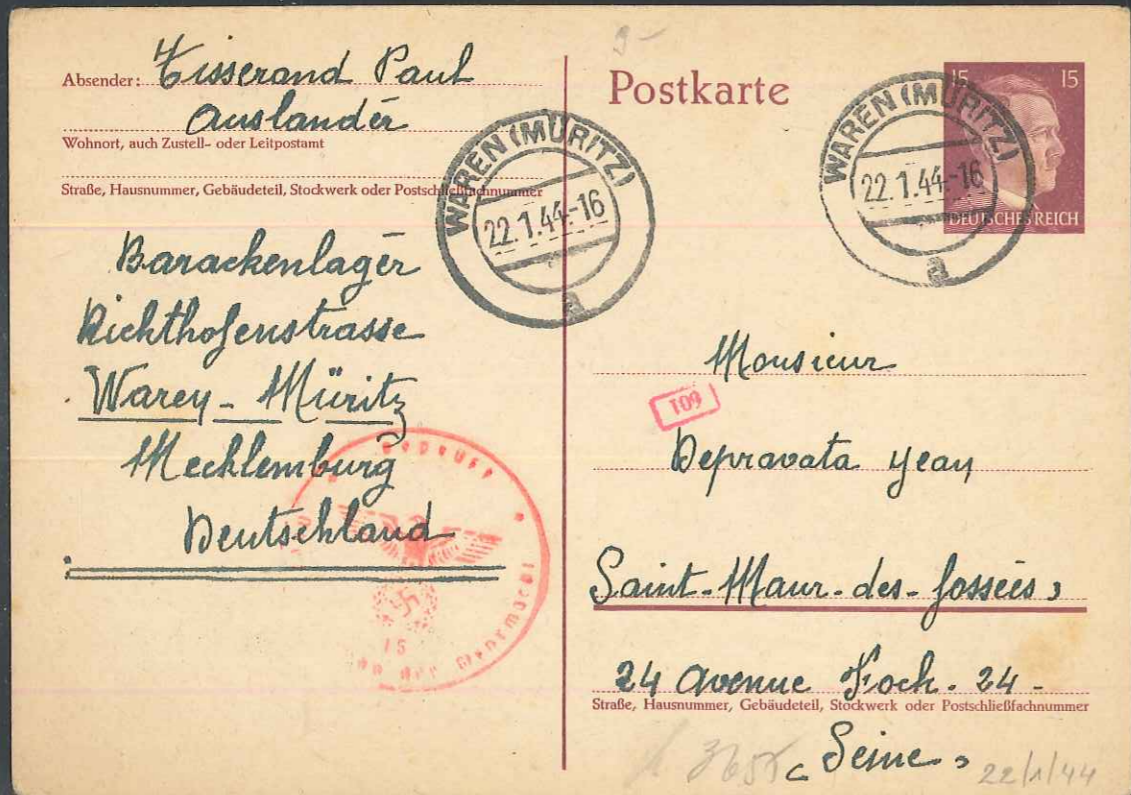 Absender: Tisserand Paul
Auslander
Wohnort, auch Zustell- oder Leitpostamt
Straße, Hausnummer, Gebäudeteil, Stockwerk oder Postschließfachnummer
Barackenlager
Richthofenstrasse
Waren - Müritz
Mecklemburg
Deutschland
WAREN (MÜRITZ)
22.1.44.-16
a
9-
Postkarte
15 15
DEUTSCHES REICH
WAREN (MÜRITZ)
22.1.44.-16
a
Monsieur
109
Depravata Jean
Saint-Maur-des-fossées
24 avenue Foch. 24 -
Straße, Hausnummer, Gebäudeteil, Stockwerk oder Postschließfachnummer
Seine
22/1/44
15
der Wehrmacht